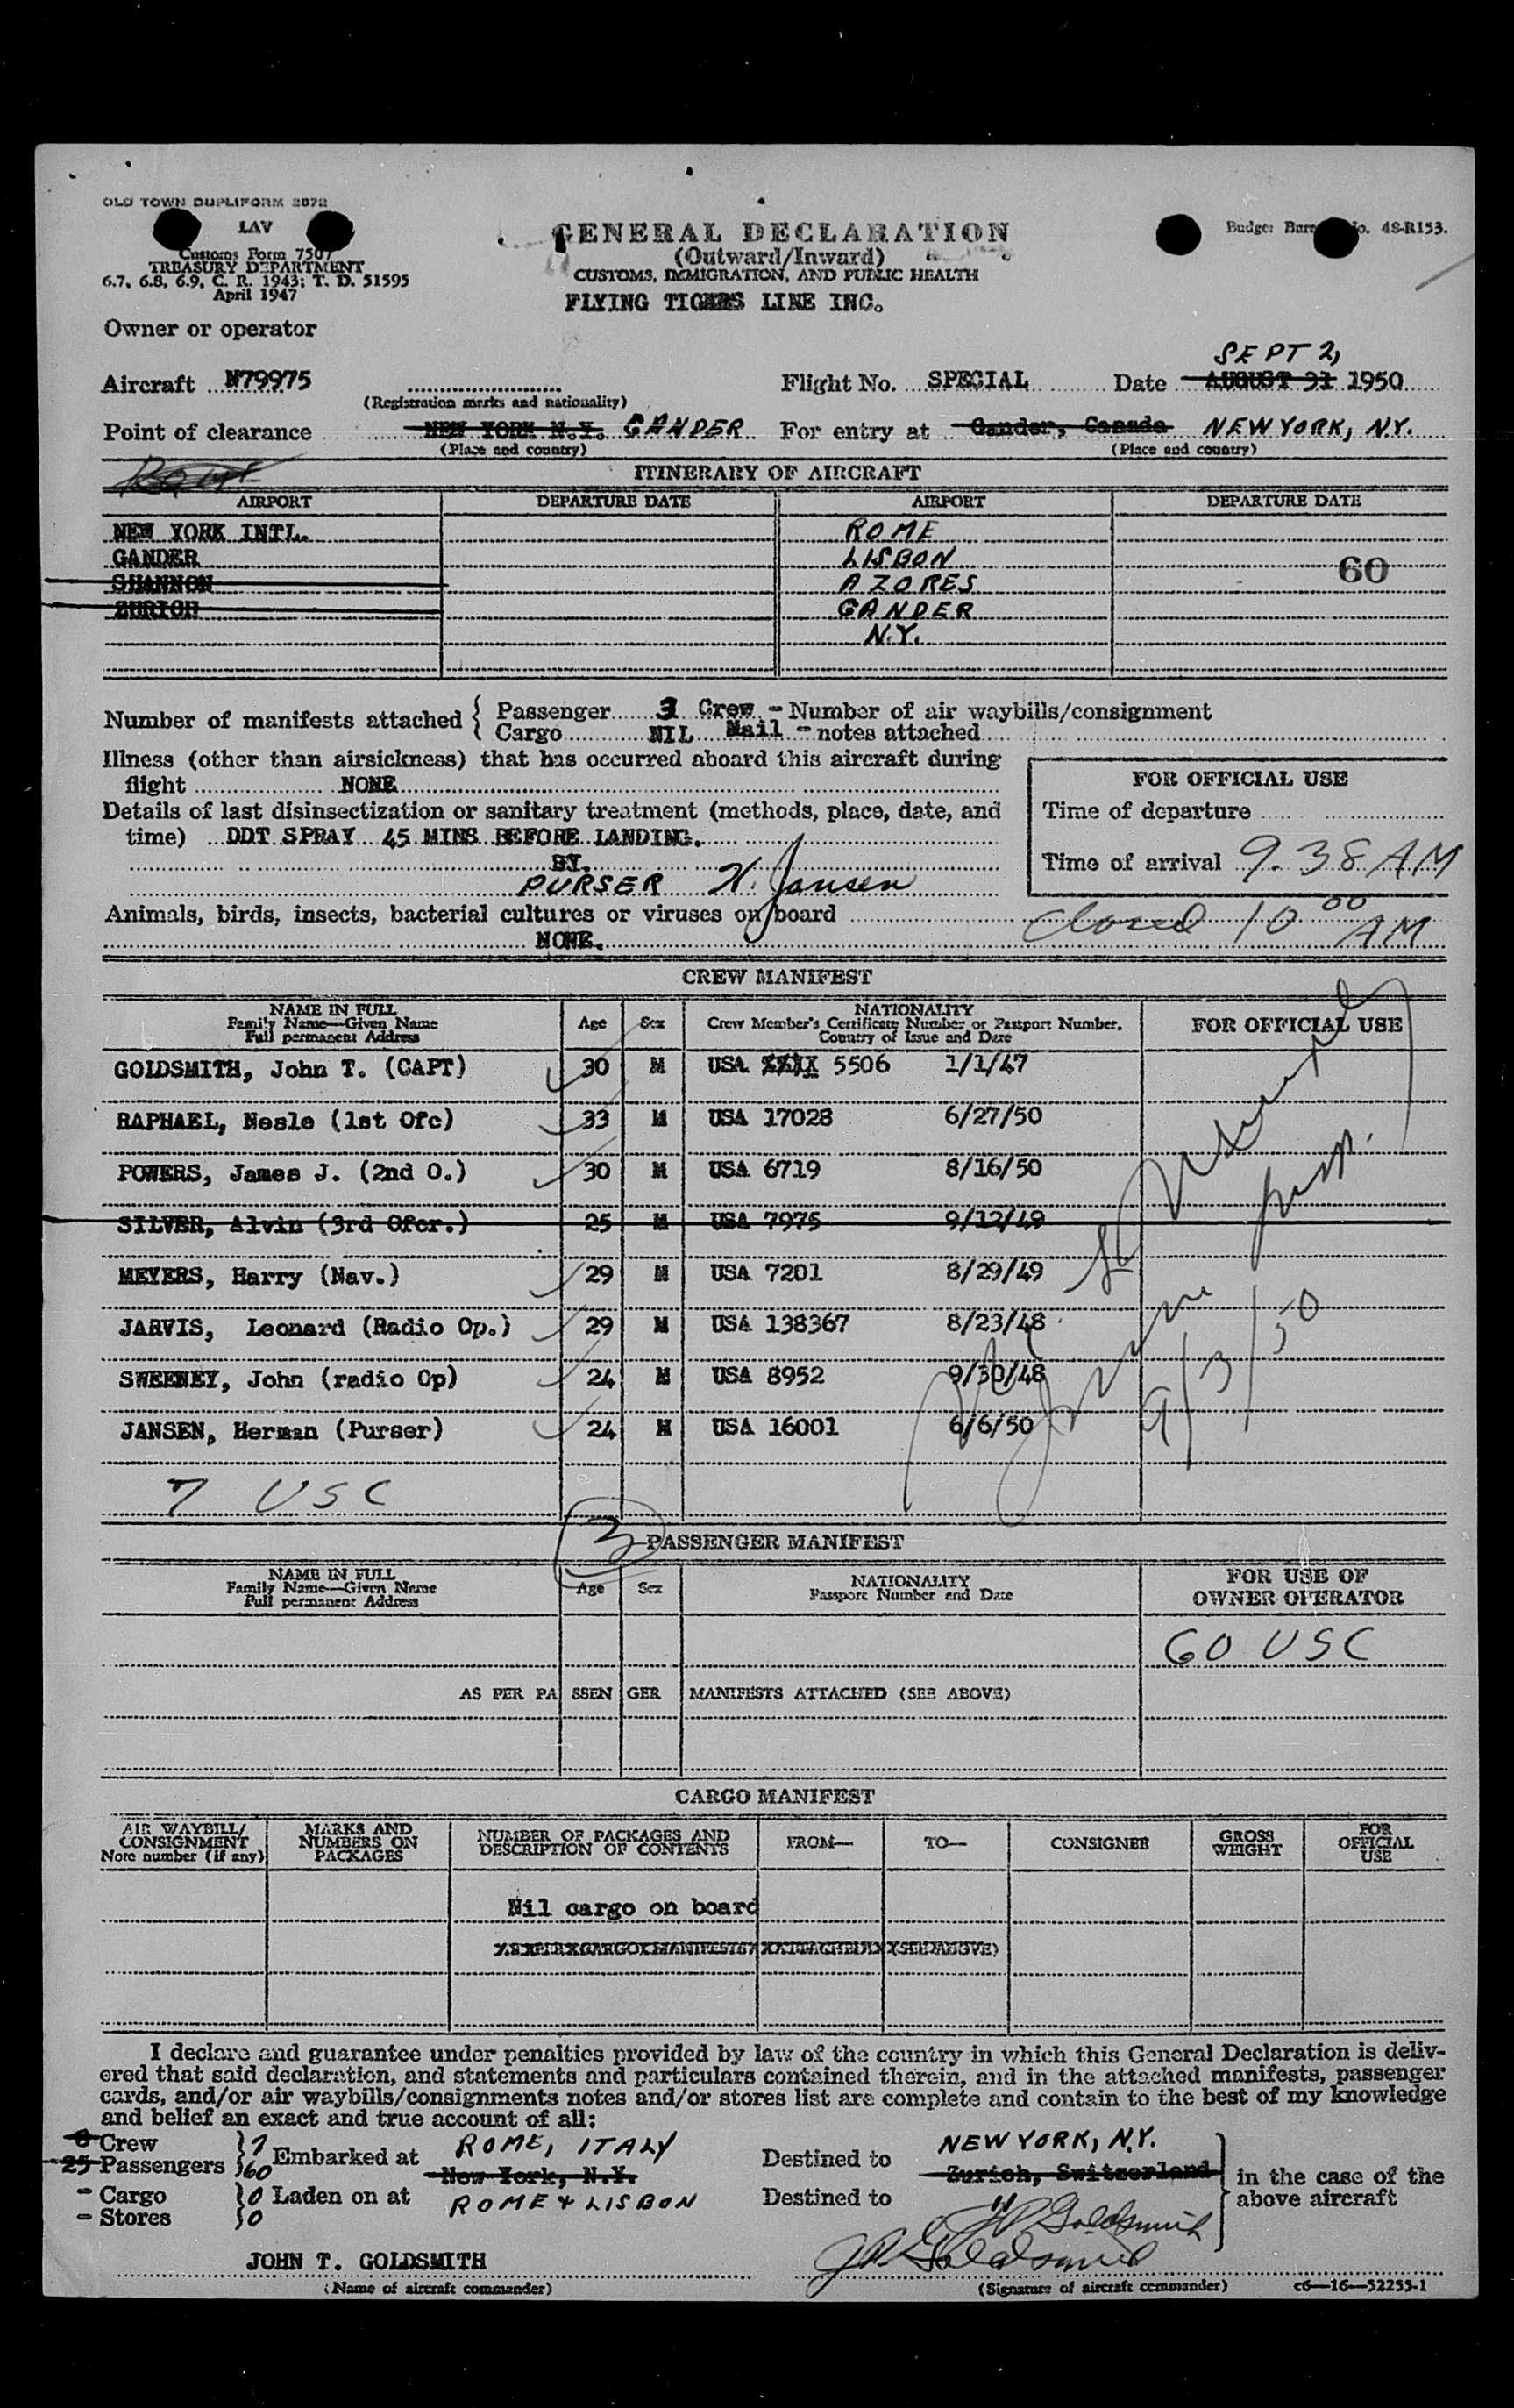 OLD TOWN DUPLIFORM 2072
LAV
Customs Form 7507
TREASURY DEPARTMENT
6.7, 6.8, 6.9, C. R. 1943; T. D. 51595
April 1947
GENERAL DECLARATION
(Outward/Inward)
CUSTOMS, IMMIGRATION, AND PUBLIC HEALTH
FLYING TIGERS LINE INC.
Budget Bureau No. 48-R153.
Owner or operator
SEPT 2,
Aircraft N79975 Flight No. SPECIAL Date AUGUST 31 1950
(Registration marks and nationality)
Point of clearance NEW YORK N.Y. GANDER For entry at Gander, Canada NEW YORK, N.Y.
(Place and country) (Place and country)
ITINERARY OF AIRCRAFT
AIRPORT DEPARTURE DATE AIRPORT DEPARTURE DATE
NEW YORK INTL. ROME
GANDER LISBON
SHANNON AZORES 60
ZURICH GANDER
N.Y.
Number of manifests attached { Passenger 3 Crew - Number of air waybills/consignment
Cargo NIL Mail - notes attached
Illness (other than airsickness) that has occurred aboard this aircraft during
flight NONE
Details of last disinsectization or sanitary treatment (methods, place, date, and
time) DDT SPRAY 45 MINS BEFORE LANDING.
BY.
PURSER H. Jansen
FOR OFFICIAL USE
Time of departure
Time of arrival 9.38 AM
Animals, birds, insects, bacterial cultures or viruses on board
NONE.
Closed 10 00 AM
CREW MANIFEST
NAME IN FULL
Family Name—Given Name
Full permanent Address
Age Sex
NATIONALITY
Crew Member's Certificate Number or Passport Number,
Country of Issue and Date
FOR OFFICIAL USE
GOLDSMITH, John T. (CAPT) 30 M USA XXXX 5506 1/1/47
RAPHAEL, Nesle (1st Ofc) 33 M USA 17028 6/27/50
POWERS, James J. (2nd O.) 30 M USA 6719 8/16/50
SILVER, Alvin (3rd Ofcr.) 25 M USA 7975 9/12/49
MEYERS, Harry (Nav.) 29 M USA 7201 8/29/49
JARVIS, Leonard (Radio Op.) 29 M USA 138367 8/23/48
SWEENEY, John (radio Op) 24 M USA 8952 9/30/48
JANSEN, Herman (Purser) 24 M USA 16001 6/6/50
9/3/50
7 USC
3
PASSENGER MANIFEST
NAME IN FULL
Family Name—Given Name
Full permanent Address
Age Sex
NATIONALITY
Passport Number and Date
FOR USE OF
OWNER OPERATOR
60 USC
AS PER PASSENGER MANIFESTS ATTACHED (SEE ABOVE)
CARGO MANIFEST
AIR WAYBILL/
CONSIGNMENT
Note number (if any)
MARKS AND
NUMBERS ON
PACKAGES
NUMBER OF PACKAGES AND
DESCRIPTION OF CONTENTS
FROM— TO— CONSIGNEE
GROSS
WEIGHT
FOR
OFFICIAL
USE
Nil cargo on board
I declare and guarantee under penalties provided by law of the country in which this General Declaration is deliv-
ered that said declaration, and statements and particulars contained therein, and in the attached manifests, passenger
cards, and/or air waybills/consignments notes and/or stores list are complete and contain to the best of my knowledge
and belief an exact and true account of all:
8 Crew } 7 Embarked at ROME, ITALY Destined to NEW YORK, N.Y.
25 Passengers } 60 New York, N.Y. Zurich, Switzerland
- Cargo } 0 Laden on at ROME + LISBON Destined to "
- Stores } 0
in the case of the
above aircraft
JP Goldsmith
JOHN T. GOLDSMITH JP Goldsmith
(Name of aircraft commander) (Signature of aircraft commander) c6—16—52255-1